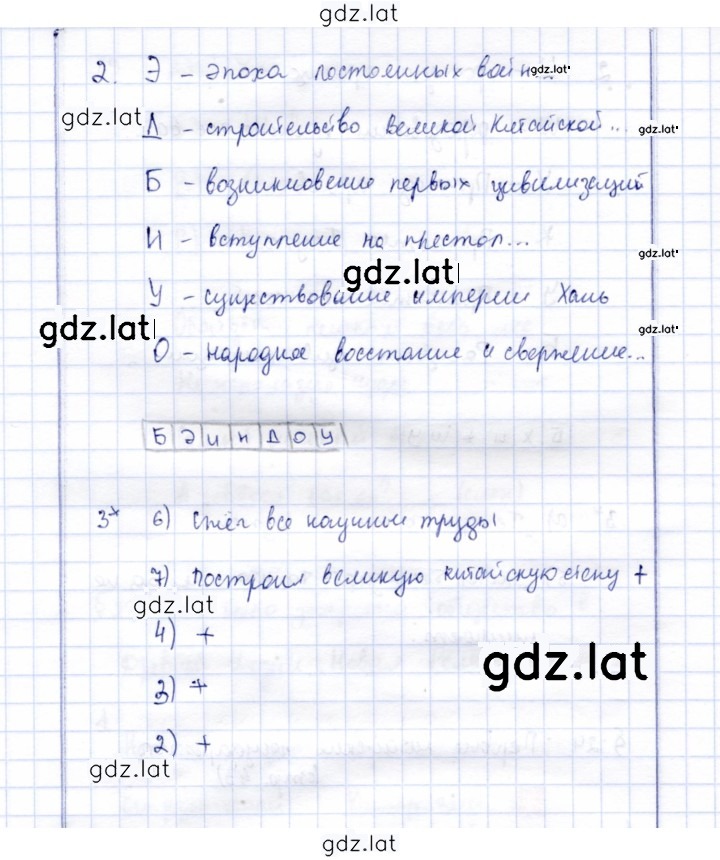 gdz.lat
2. Э – эпоха постоянных войн... gdz.lat
gdz.lat
Д – строительство Великой Китайской.. gdz.lat
Б – возникновение первых цивилизаций
И – вступление на престол... gdz.lat
gdz.lat
У – существование империи Хань
gdz.lat gdz.lat
О – народное восстание и свержение...
Б Э И Н Д О У
3* 6) Сжёг все научные труды
7) Построил великую китайскую стену +
gdz.lat
4) +
gdz.lat
3) +
2) +
gdz.lat
gdz.lat